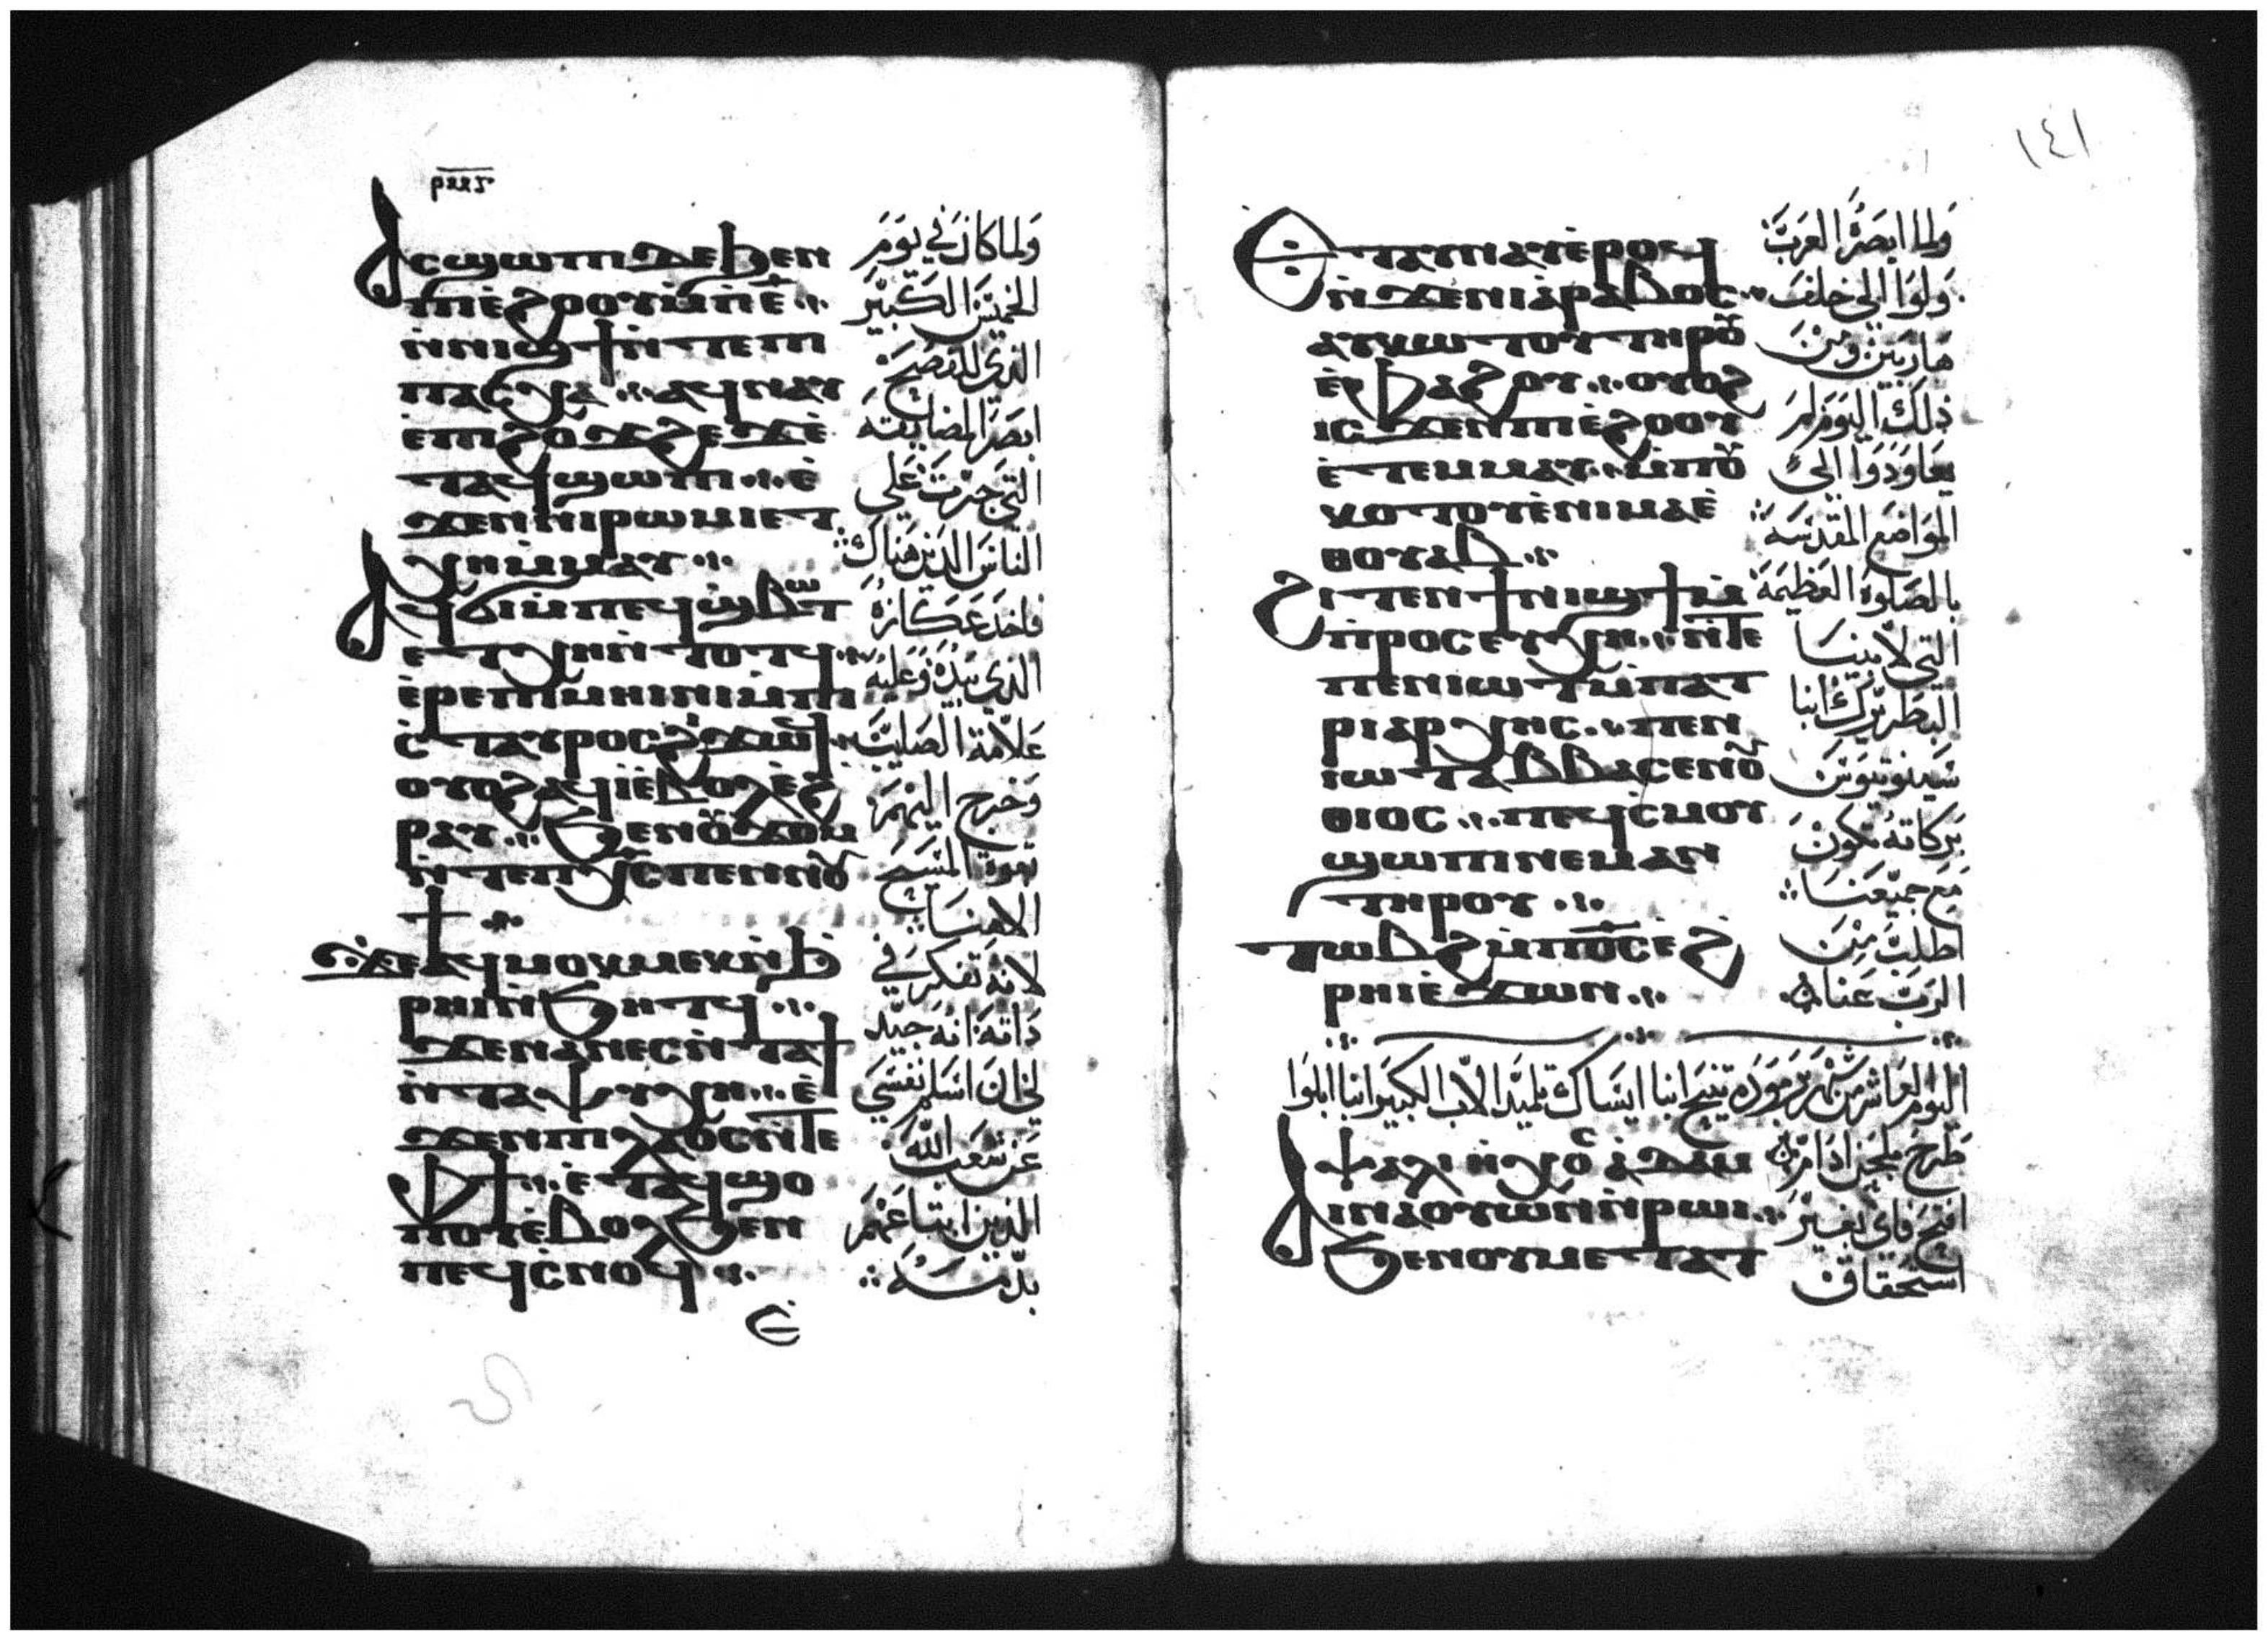 ⲣⲙⲁ
Ⲁⲥϣⲱⲡⲓ ⲇⲉ ϧⲉⲛ
ⲡⲓⲉ̀ϩⲟⲟⲩ ⲙ̀ⲡⲉ̅
ⲛ̀ⲛⲓϣϯ ⲛ̀ⲧⲉⲡⲓ
ⲡⲁⲥⲭⲁ ⲁϥⲛⲁⲩ
ⲉ̀ⲡⲓϩⲟϫϩⲉϫ ⲉ̀
ⲧⲁϥϣⲱⲡⲓ ⲉ̀
ϫⲉⲛ ⲛⲓⲣⲱⲙⲓ ⲉⲧ
ⲭⲏ ⲙ̀ⲙⲁⲩ
Ⲁϥϭⲓ ⲙ̀ⲡⲉϥϣ̀ⲃⲱⲧ
ⲉⲧⲭⲏ ⲛ̀ⲧⲟⲧϥ
ⲉ̀ⲣⲉ ⲡⲓⲙⲏⲓⲛⲓ ⲙ̀ⲡⲓ
ⲥ̀ⲧⲁⲩⲣⲟⲥ ϩⲓϫⲱϥ
ⲟⲩⲟϩ ⲁϥⲓ̀ ⲉ̀ⲃⲟⲗ ⲉ̀ϩ
ⲣⲁⲩ ϧⲉⲛ ⲟⲩϫⲟⲙ
ⲛ̀ⲧⲉ ⲡⲭ̅ⲥ̅ ⲡⲉⲛⲛⲟⲩ
ϯ
ϫⲉ ⲁϥⲙⲟⲕⲙⲉⲕ ⲛ̀ϧ
ⲣⲏⲓ ⲛ̀ϧⲏⲧϥ
ϫⲉ ⲛⲁⲛⲉⲥ ⲛ̀ⲧⲁϯ
ⲛ̀ⲧⲁⲯⲩⲭⲏ ⲉ̀
ϫⲉⲛ ⲡⲓⲗⲁⲟⲥ ⲛ̀ⲧⲉ
ⲫϯ ⲉ̀ⲧⲁϥϣⲟ
ⲡⲟⲩ ⲉ̀ⲃⲟⲗ ϧⲉⲛ
ⲡⲉϥⲥ̀ⲛⲟϥ
ولما كان في يوم
الخميس الكبير
الذي للفصح
ابصر المضايقة
التي جرت على
الناس الذين هناك
فاخذ عكازه
الذي بيده وعليه
علامة الصليب
وخرج اليهم
بقوة المسيح
الاهنا
لانه تفكر في
ذاته انه جيد
لي ان اسلم نفسي
عن شعب الله
الذين ابتاعهم
بدمه
١٤١
Ⲉⲧⲁⲩⲛⲁⲩ ⲉ̀ⲣⲟϥ
ⲛ̀ϫⲉ ⲛⲓⲁⲣⲁⲃⲟⲥ
ⲁⲩⲕⲱⲧⲟⲩ ⲧⲏⲣⲟⲩ
ⲉ̀ⲫⲁϩⲟⲩ ⲟⲩⲟϩ
ⲓⲥϫⲉⲛ ⲡⲓⲉ̀ϩⲟⲟⲩ
ⲉ̀ⲧⲉⲙⲙⲁⲩ ⲙ̀ⲡⲟⲩ
ⲕⲟⲧⲟⲩ ⲉ̀ⲛⲓⲙⲁ ⲉ̀
ⲑⲟⲩⲁⲃ
Ϩⲓⲧⲉⲛ ϯⲛⲓϣϯ ⲙ̀
ⲡ̀ⲣⲟⲥⲉⲩⲭⲏ ⲛ̀ⲧⲉ
ⲡⲉⲛⲓⲱⲧ ⲙ̀ⲡⲁⲧ
ⲣⲓⲁⲣⲭⲏⲥ ⲡⲉⲛ
ⲓⲱⲧ ⲁⲃⲃⲁ ⲥⲉⲛⲟⲩ
ⲑⲓⲟⲥ ⲡⲉϥⲥ̀ⲙⲟⲩ
ϣⲱⲡⲓ ⲛⲉⲙⲁⲛ
ⲧⲏⲣⲟⲩ
ⲧⲱⲃϩ ⲙ̀ⲡϭⲟⲓⲥ ⲉϩ
ⲣⲏⲓ ⲉ̀ϫⲱⲛ
ولما ابصره العرب
ولوا الي خلف
هاربين ومن
ذلك اليوم لم
يعاودوا الى
المواضع المقدسة
بالصلوة العظيمة
التي لابينا
البطريرك انبا
شينوتيوس
بركاته تكون
مع جميعنا
اطلب من
الرب عنا
اليوم العاشر من شهر برموده تنيح انبا ايساك تلميذ الاب الكبير انبا ابلوا
ⲯⲁⲗⲓ ⲛ̀ⲭⲟⲥ ⲁⲇⲁⲙ
Ⲁⲓⲛⲁⲟⲩⲱⲛ ⲛ̀ⲣⲱⲓ
ϧⲉⲛ ⲟⲩⲙⲉⲧⲁⲧ
طرح بلحن ادام
افتح فاي بغير
استحقاق